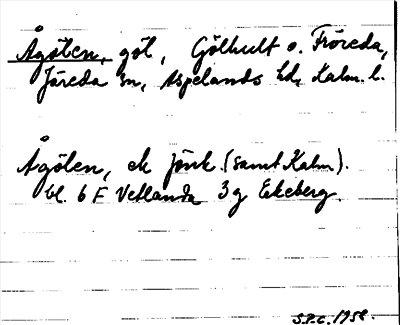 Ågölen, göl, Gölhult o. Fröreda,
Järeda sn, Aspelands hd, Kalm. l.
Ågölen, ek Jönk. (samt Kalm).
bl. 6 F Vetlanda 3 g Ekeberg.
S.P.C. 1958.